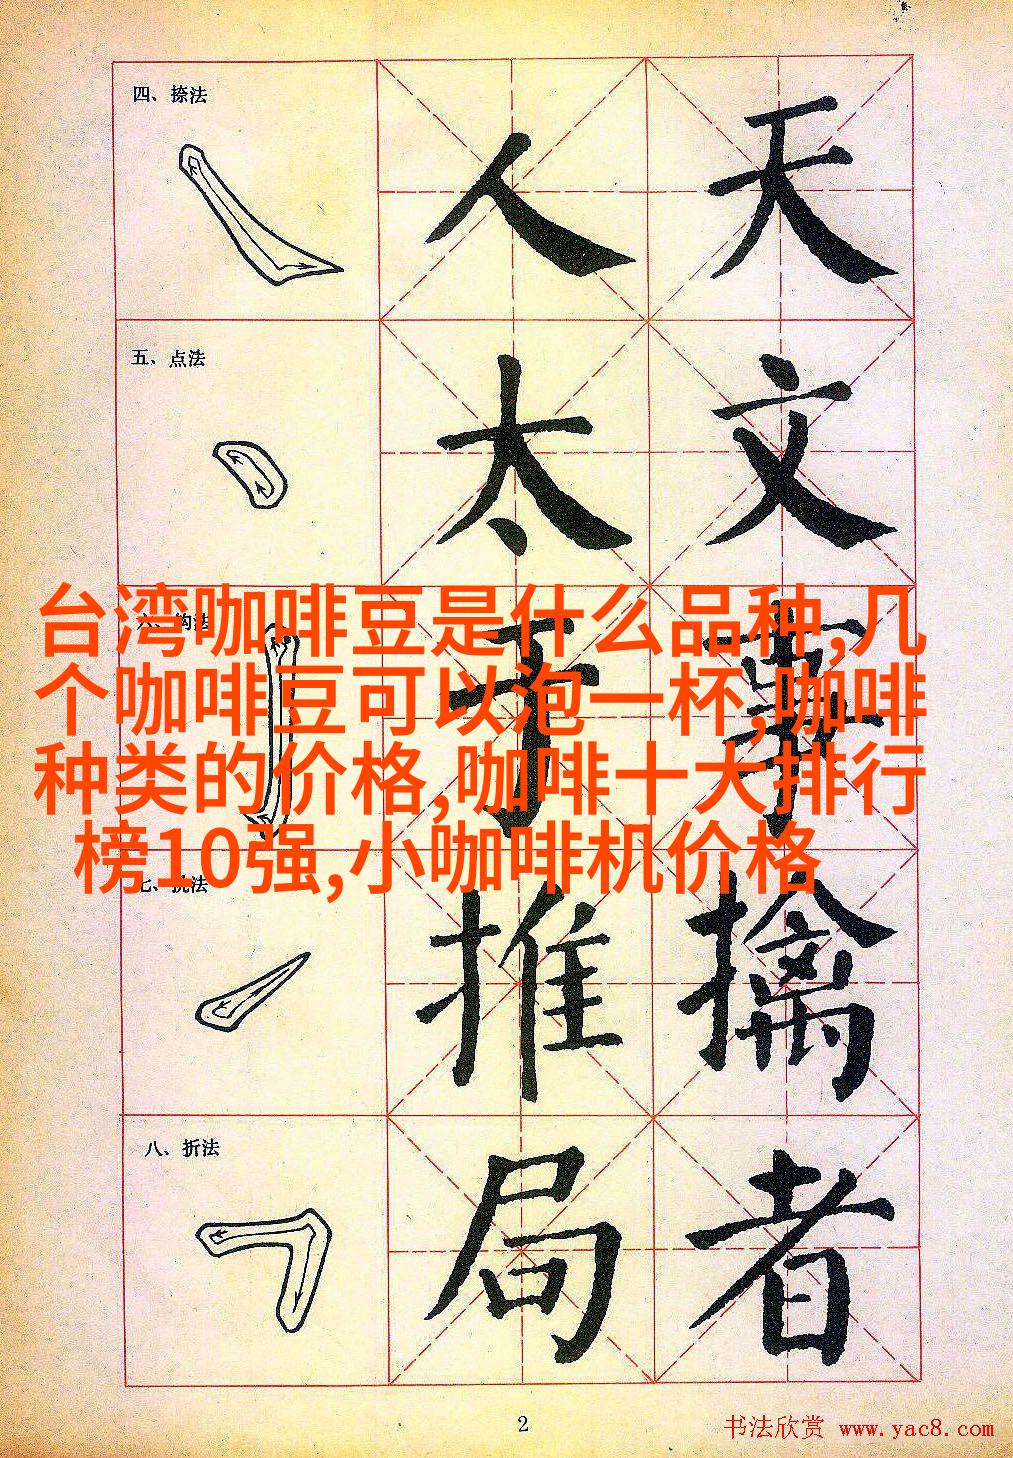 四、捺法
人 天
五、点法
太 文
台湾咖啡豆是什么品种,几
个咖啡豆可以泡一杯,咖啡
种类的价格,咖啡十大排行
榜10强,小咖啡机价格
于 事
推 擒
八、折法
局 者
2
书法欣赏 www.yac8.com